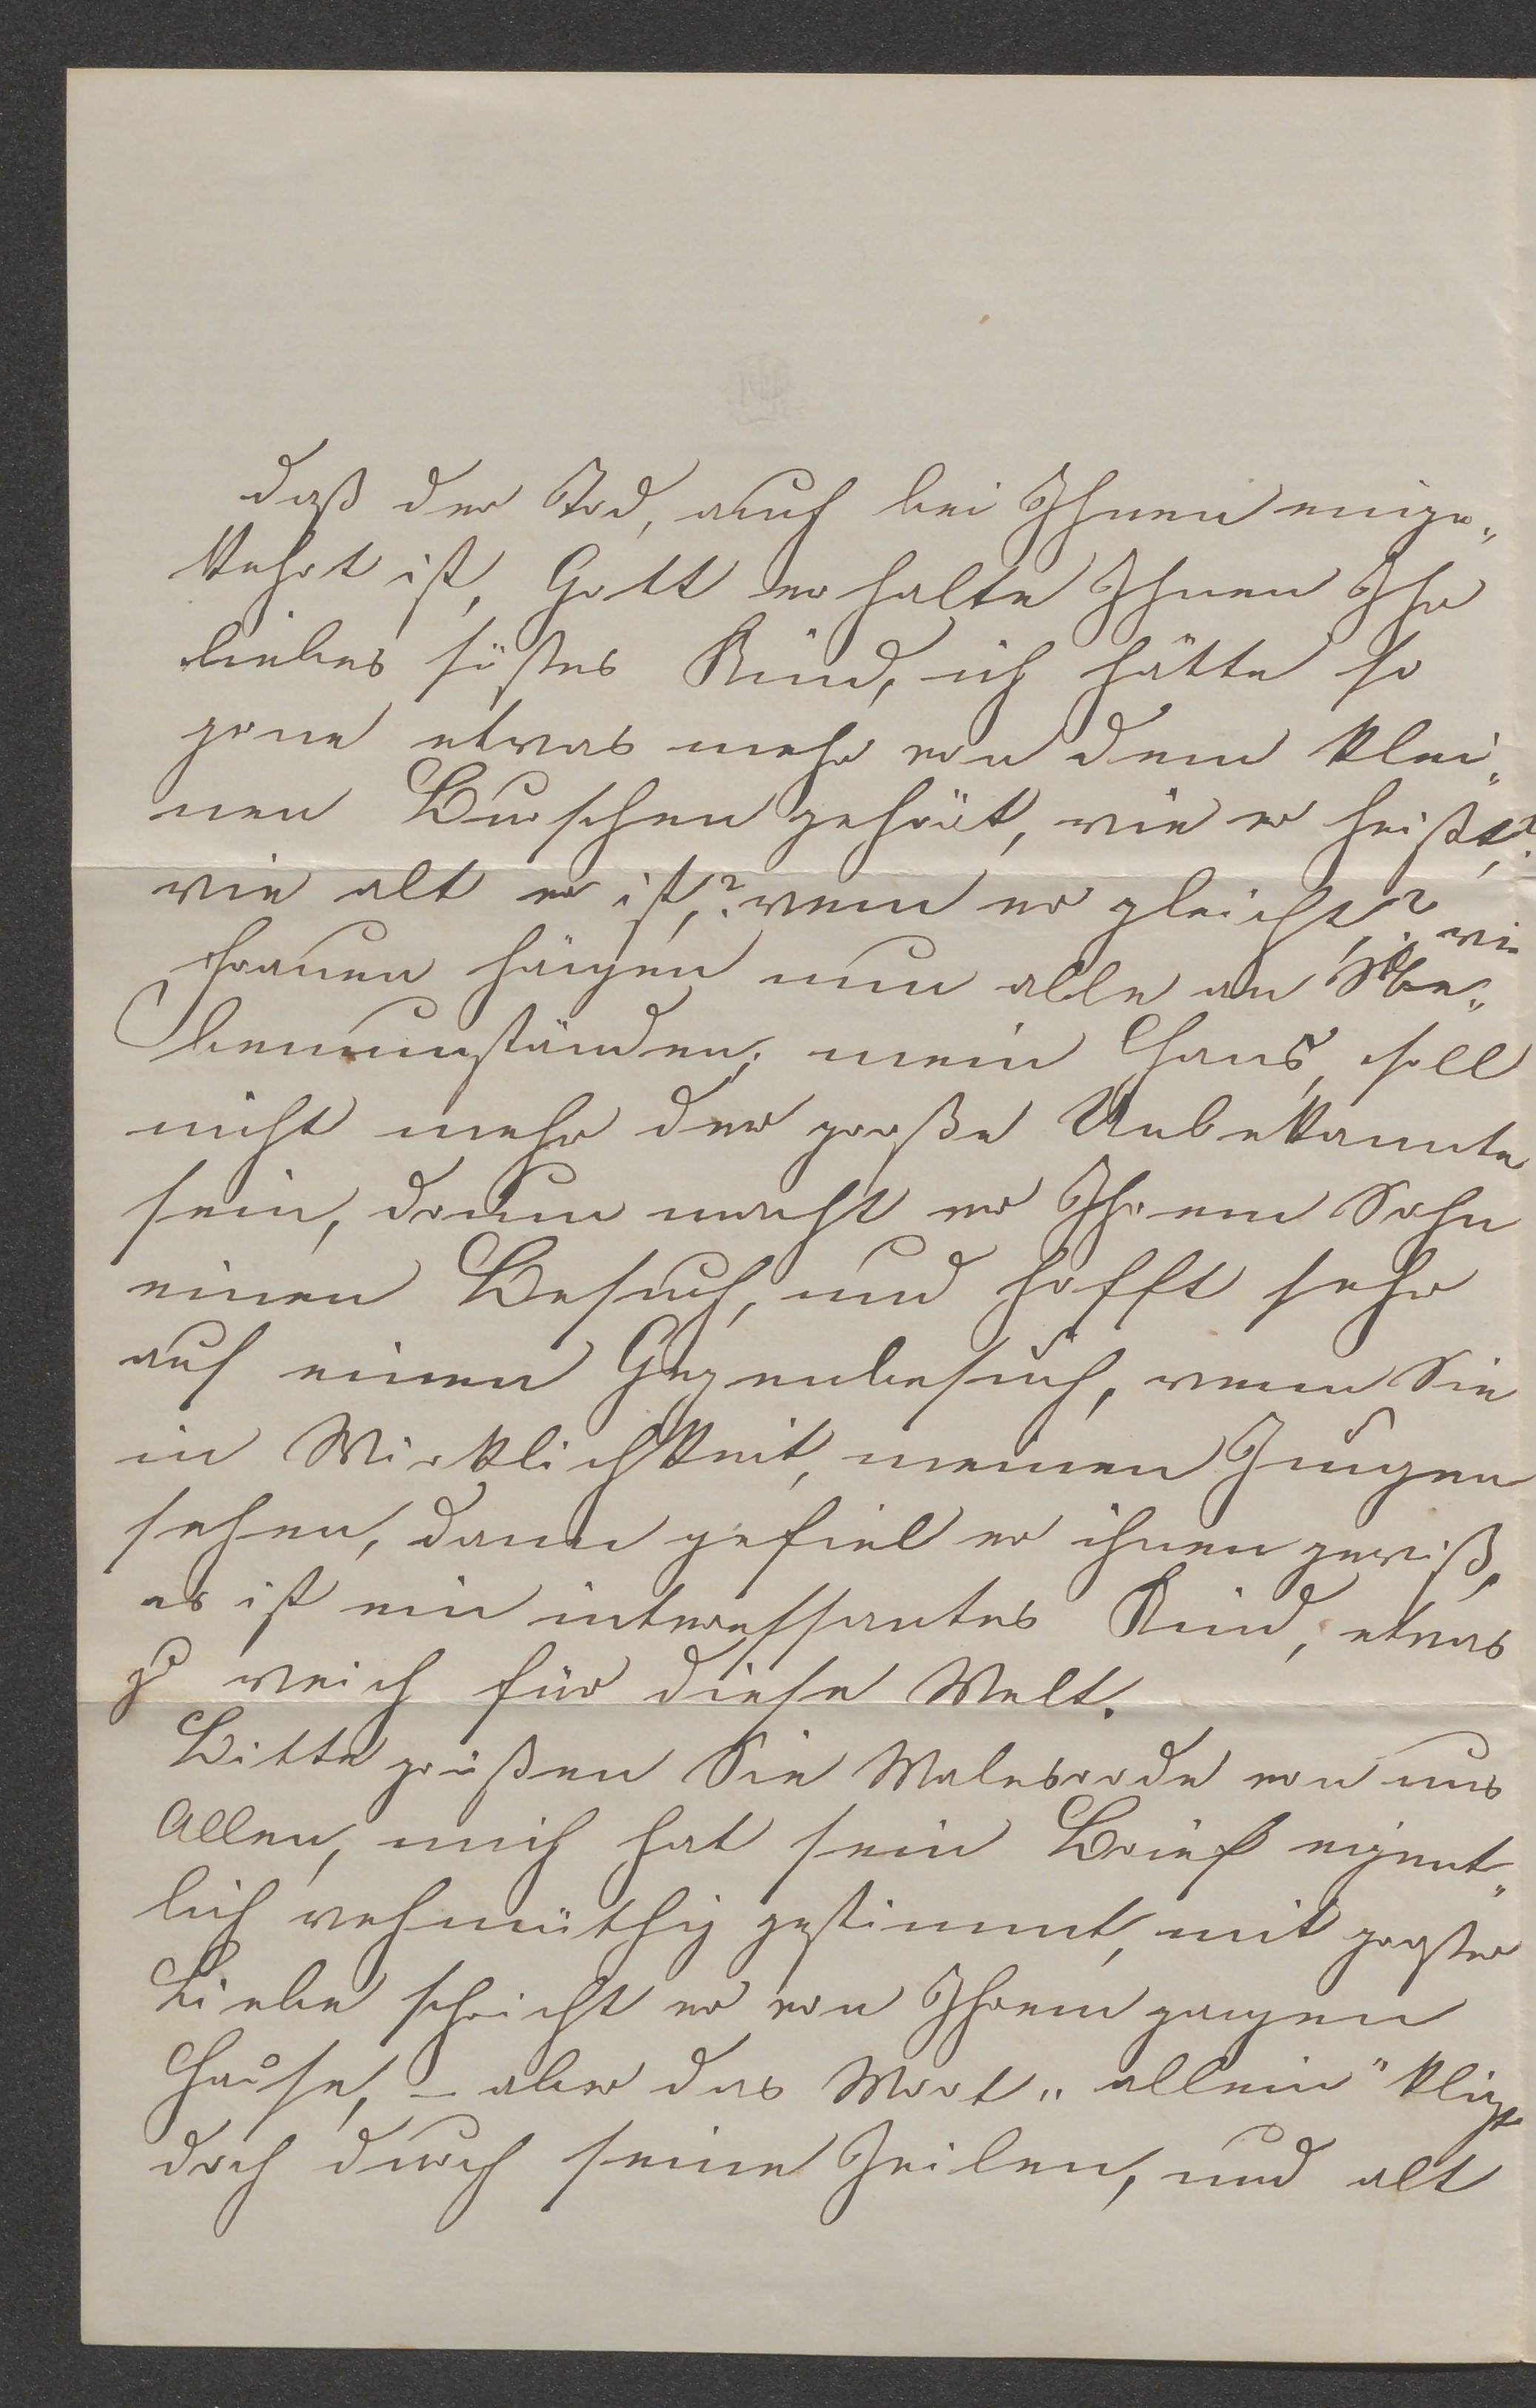 daß der Tod, auch bei Ihnen einge„
kehrt ist, Gott erhalte Ihnen Ihr
liebes süßes Kind, ich hätte so
gerne etwas mehr von dem klei„
nen Burschen gehört, wie er heißt,?
wie alt er ist,? wem er gleicht,? wir
Frauen hängen nun alle an Ne„
benumständen; mein Hans, soll
nicht mehr der große Unbekannte
sein, darum macht er Ihrem Sohn
einen Besuch, und hofft sehr
auf einen Gegenbesuch, wenn Sie
in Wirklichkeit, meinen Jungen
sehen, dann gefiel er ihnen gewiß,
es ist ein interessantes Kind, etwas
zu weich für diese Welt.
Bitte grüßen Sie Walesrode von uns
Allen, mich hat sein Brief eigent„
lich wehmüthig gestimmt, mit großer
Liebe schricht er von Ihrem ganzen
Hause, – aber das Wort „allein" klingt
doch durch seine Zeilen, und alt